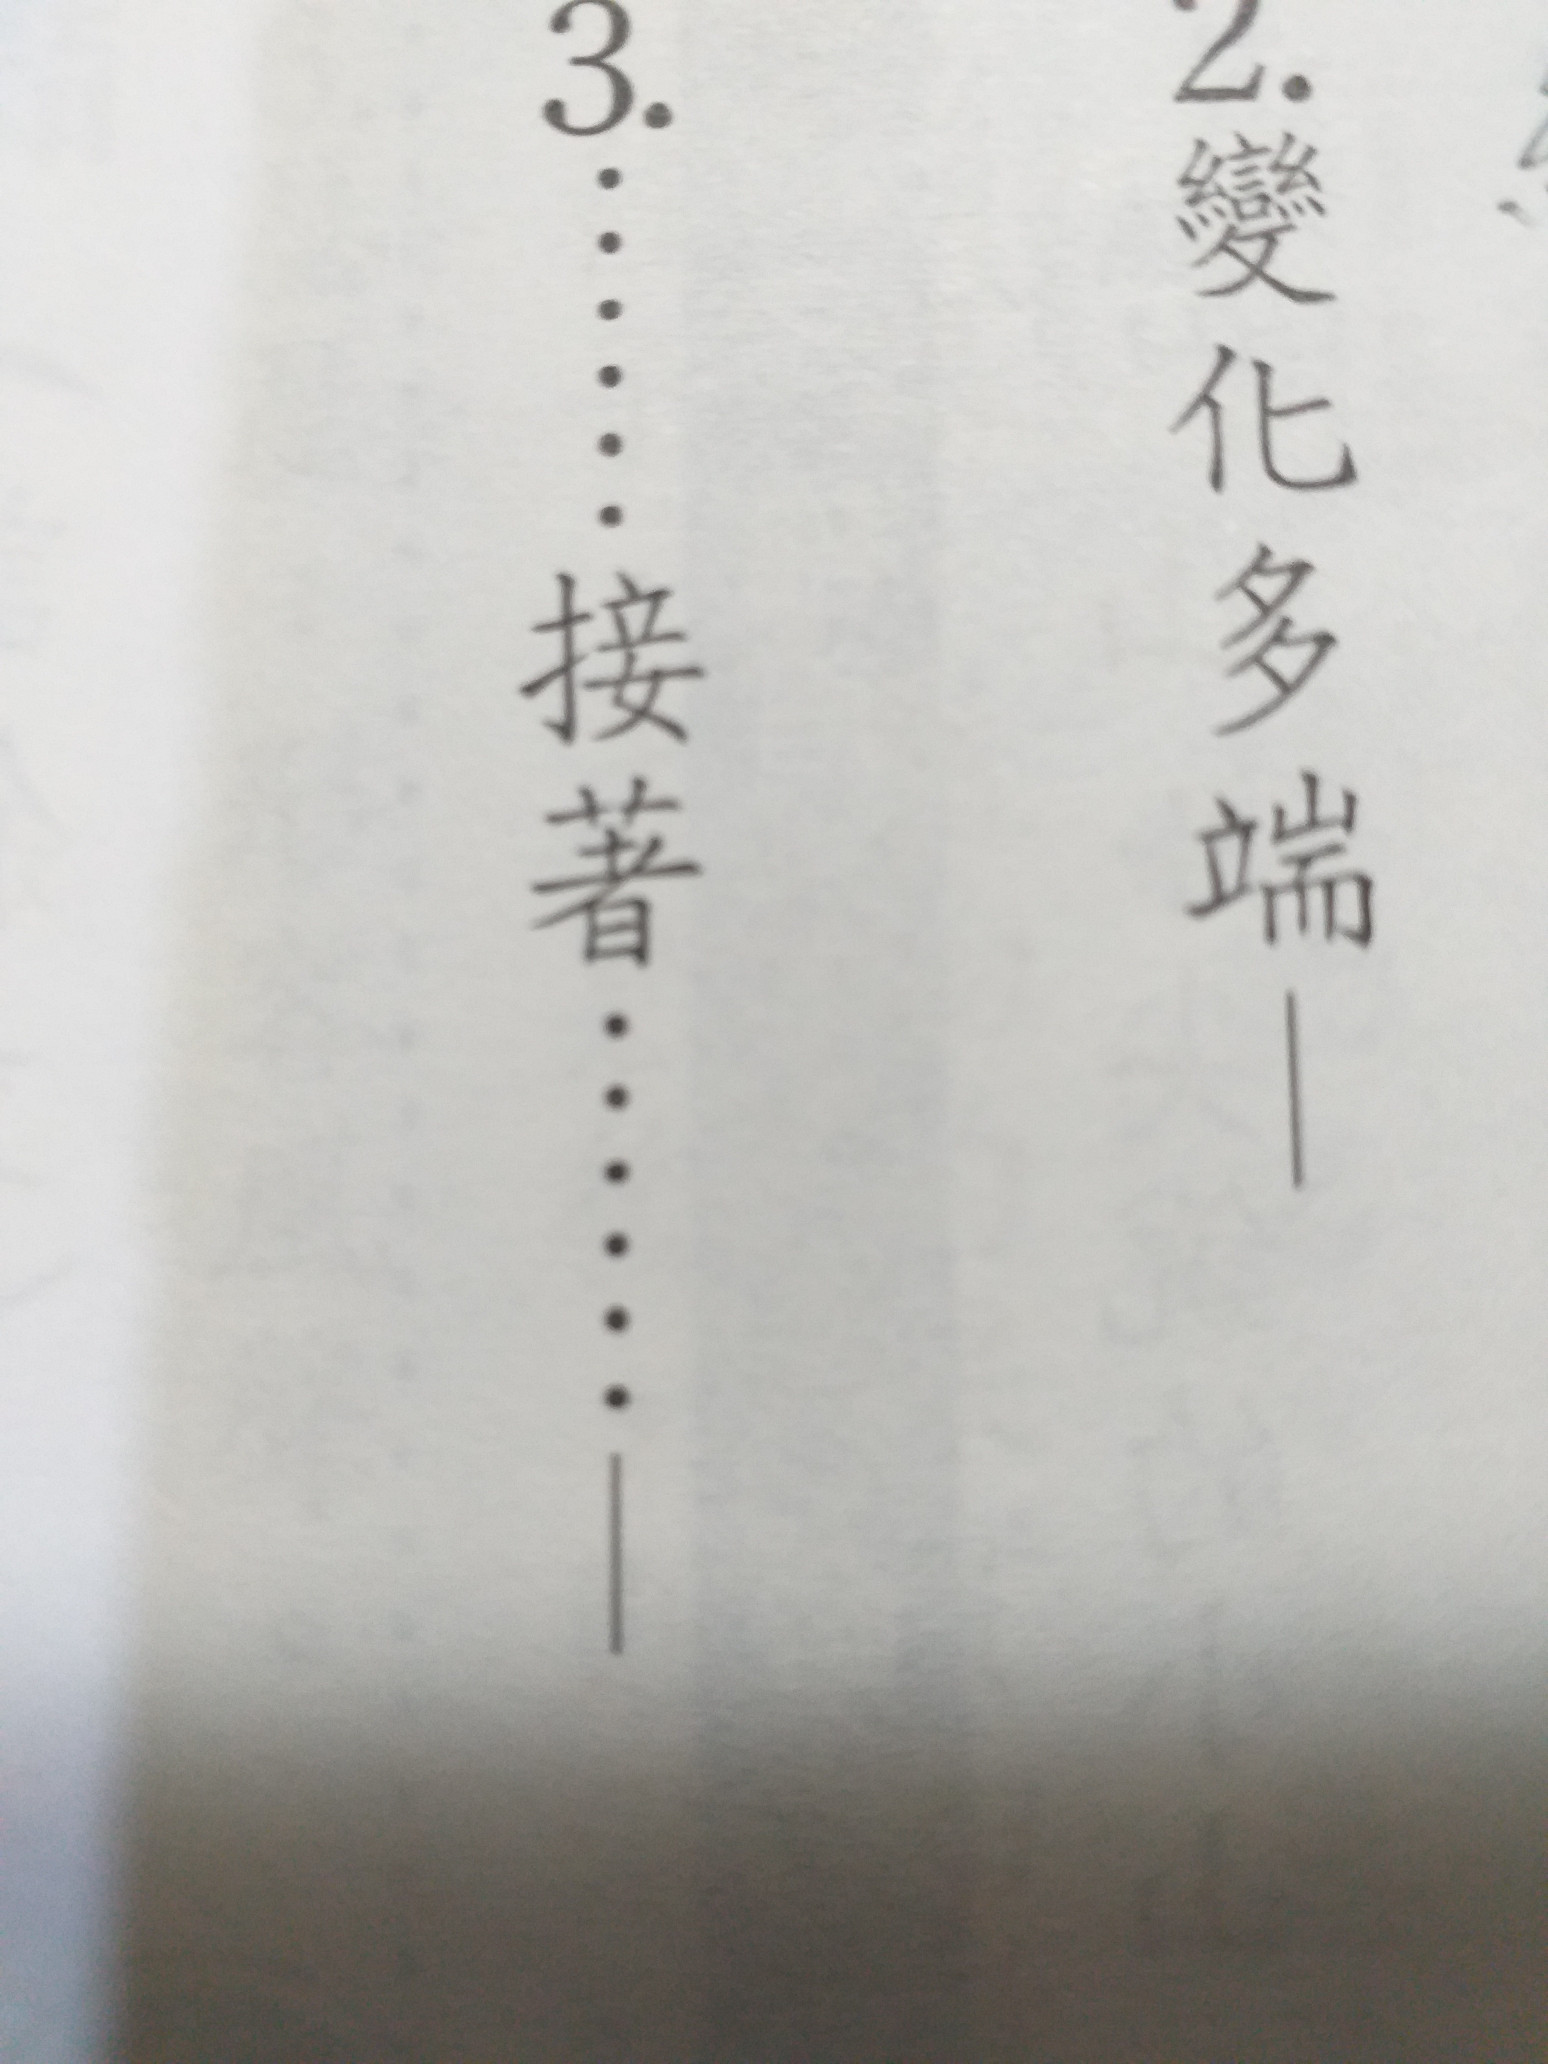 2.變化多端—
3.……接著……—